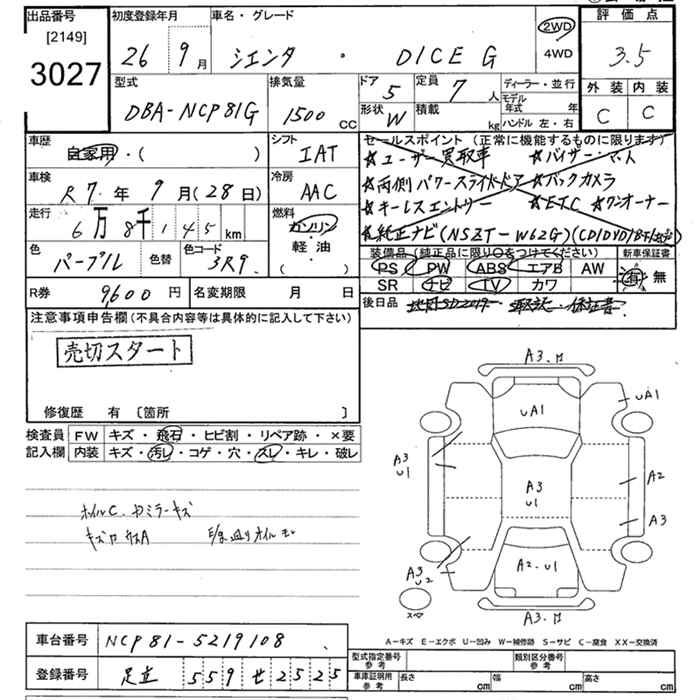 出品番号
[2149]
3027
初度登録年月
26 9月
車名・グレード
シエンタ ・ DICE G
2WD
4WD
評価点
3.5
外装 内装
C C
型式
DBA-NCP81G
排気量
1500 CC
ドア
5
定員
7人
形状
W
積載
kg
ディーラー・並行
モデル年式 年
ハンドル 左・右
車歴
自家用・( )
シフト
IAT
車検
R7年9月(28日)
冷房
AAC
走行
6万8千145km
燃料
ガソリン
軽油
( )
色
パープル
色替
色コード
3R9
R券
9600円
名変期限 月 日
セールスポイント(正常に機能するものに限ります)
☆ユーザー買取車 ☆バイザー・マット
☆両側パワースライドドア ☆バックカメラ
☆キーレスエントリー ☆ETC ☆ワンオーナー
☆純正ナビ(NSZT-W62G)(CD/DVD/
装備品(純正品に限り○をつけてください)
新車保証書
PS PW ABS エアB AW
SR ナビ TV カワ
有 無
後日品
注意事項申告欄(不具合内容等は具体的に記入して下さい)
売切スタート
修復歴 有 [箇所 ]
検査員記入欄
FW キズ・飛石・ヒビ割・リペア跡・×要
内装 キズ・汚レ・コゲ・穴・スレ・キレ・破レ
ホイルC ミラーキズ
A3.
UA1
UA1
A3
U1
A3
U1
A2
A3
A2.U1
A3
U2
スペア
A3.
A-キズ E-エクボ U-凹み W-補修跡 S-サビ C-腐食 XX-交換済
車台番号
NCP81-5219108
登録番号
足立 559 せ 2525
型式指定番号
参考
類別区分番号
参考
車庫証明用
参考
長さ cm
幅 cm
高さ cm